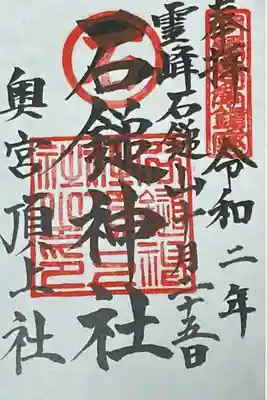 奉拝
令和二年
月二十五日
霊峰石鎚山
石鎚神社
奥宮頂上社